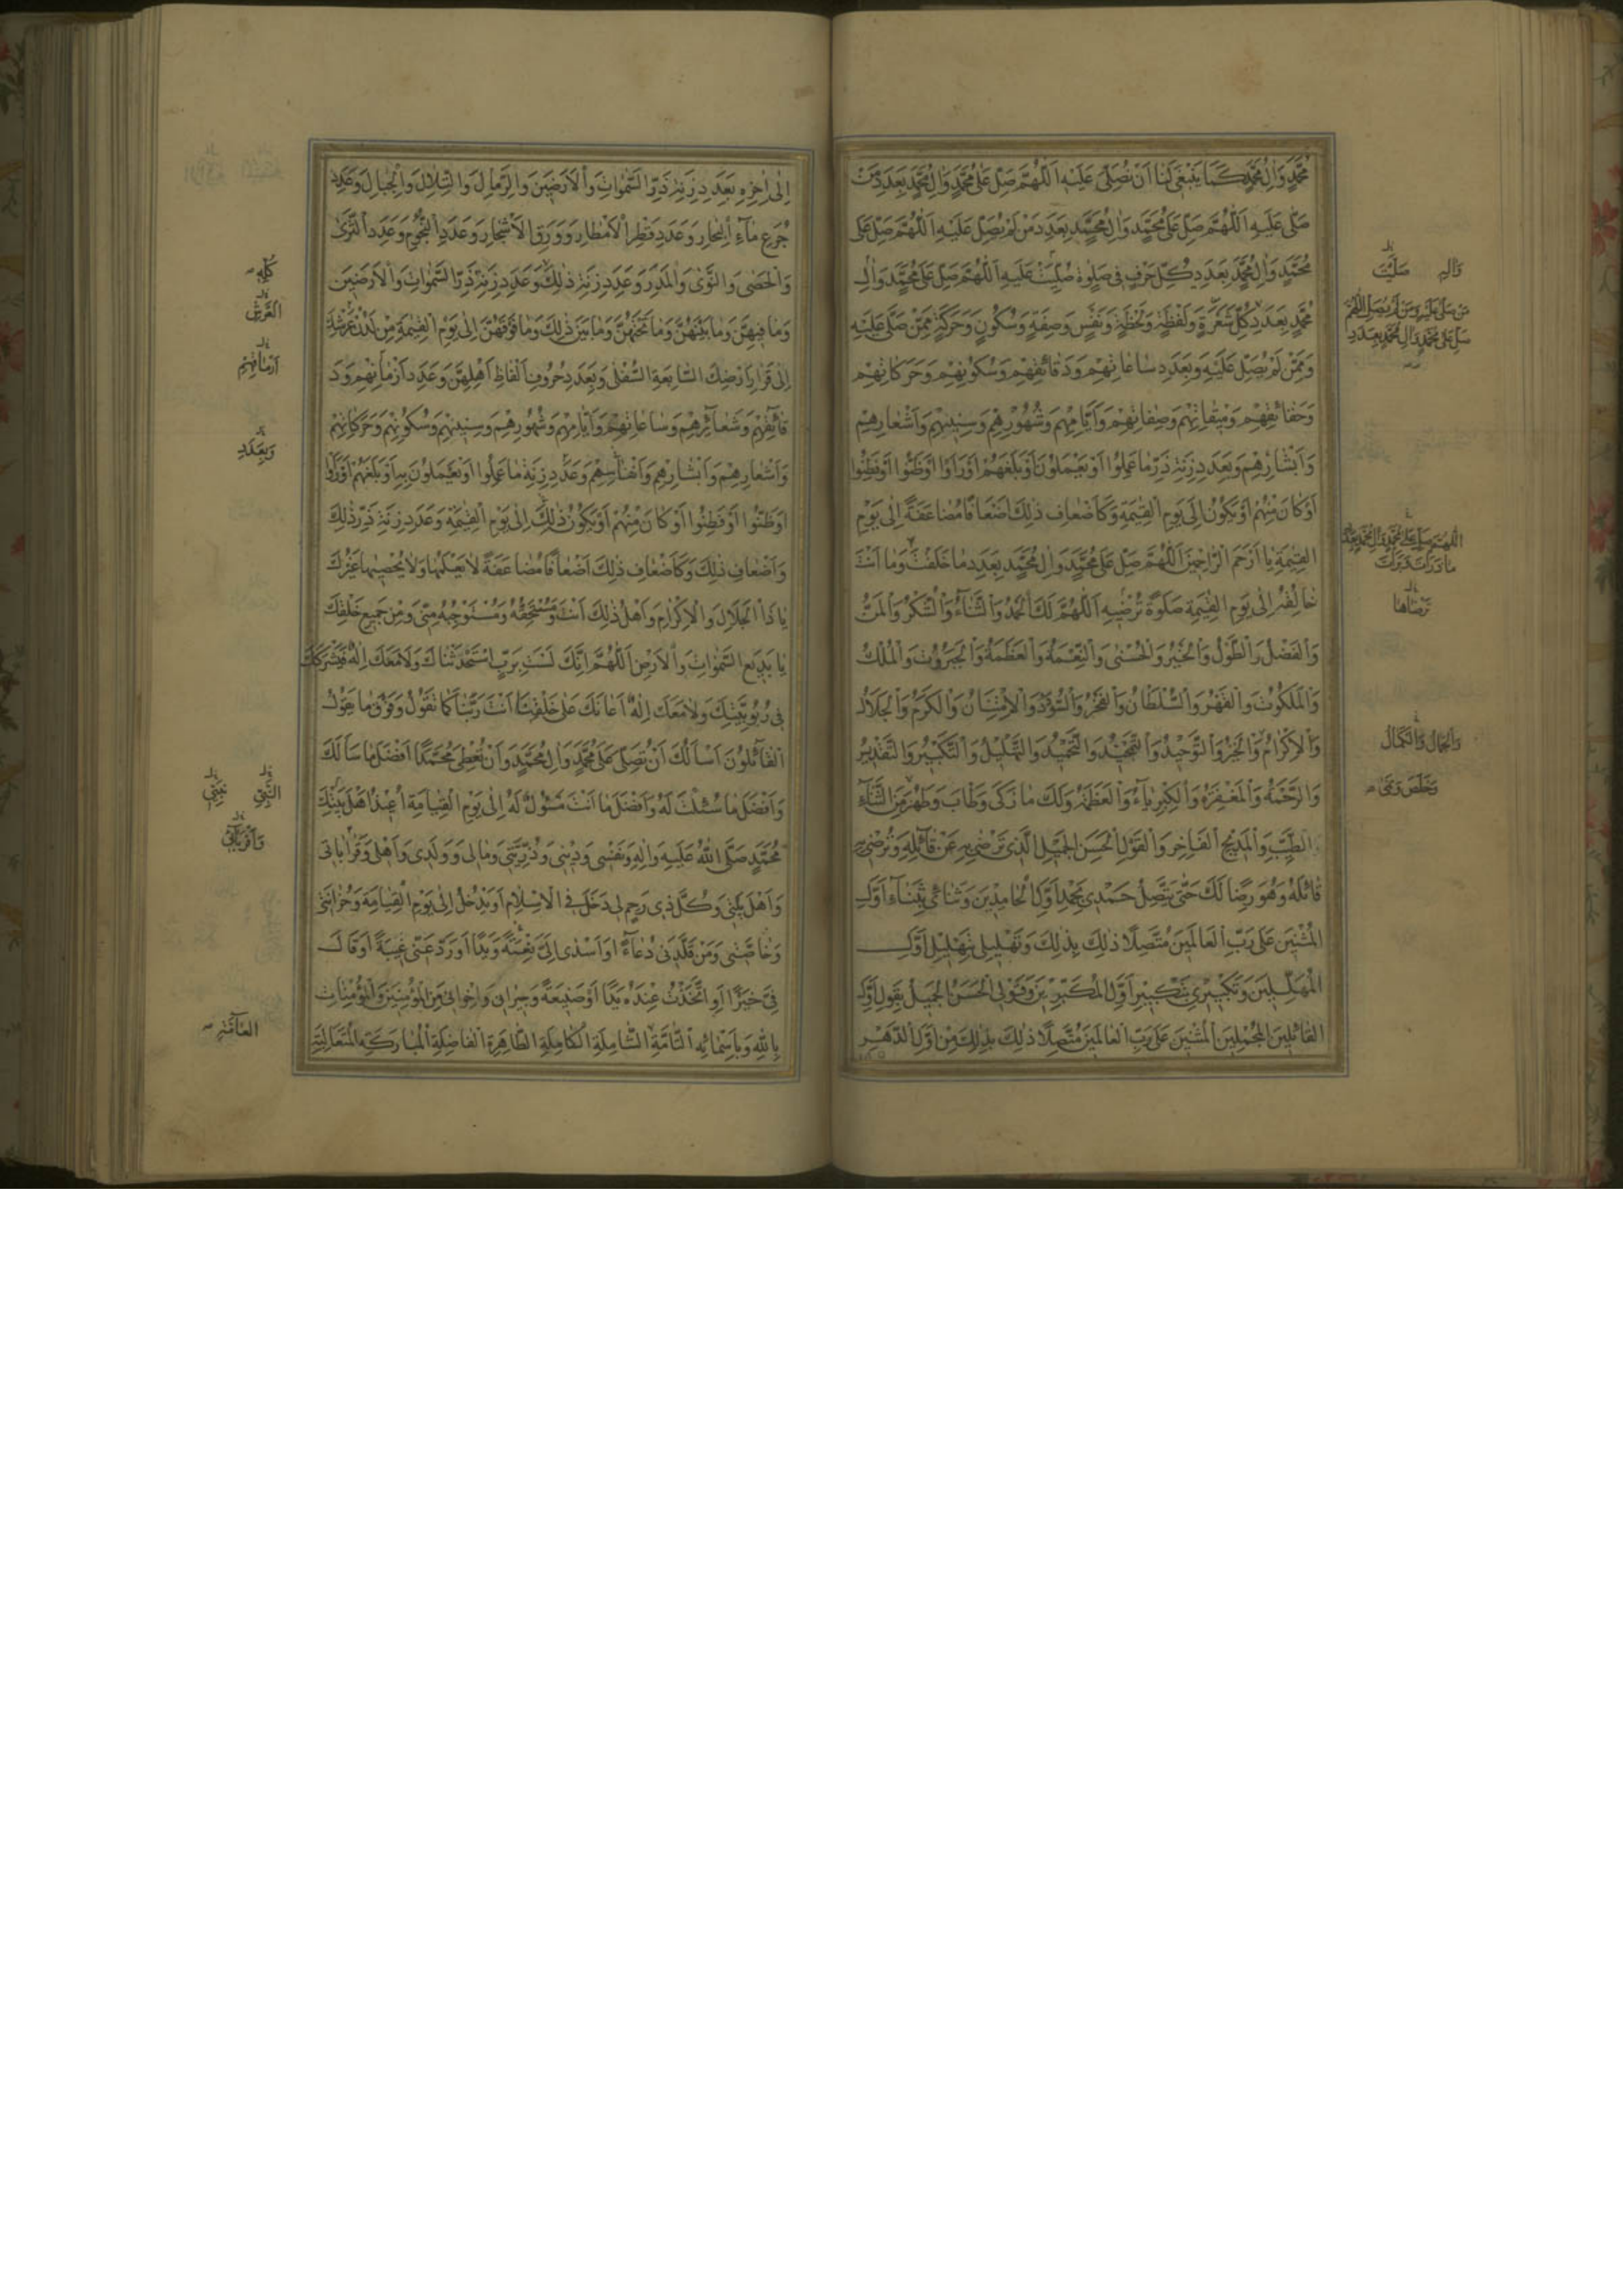 مُحَمَّدٍ وَاٰلِ مُحَمَّدٍ كَمَا يَنْبَغِى لَنا اَنْ نُصَلِّىَ عَلَيْهِ اَللّٰهُمَّ صَلِّ عَلىٰ مُحَمَّدٍ وَاٰلِ مُحَمَّدٍ بِعَدَدِ مَنْ
صَلّٰى عَلَيْهِ اَللّٰهُمَّ صَلِّ عَلىٰ مُحَمَّدٍ وَاٰلِ مُحَمَّدٍ بِعَدَدِ مَنْ لَمْ يُصَلِّ عَلَيْهِ اَللّٰهُمَّ صَلِّ عَلىٰ
مُحَمَّدٍ وَاٰلِ مُحَمَّدٍ بِعَدَدِ كُلِّ حَرْفٍ فى صَلٰوةٍ صُلِّيَتْ عَلَيْهِ اَللّٰهُمَّ صَلِّ عَلىٰ مُحَمَّدٍ وَاٰلِ
مُحَمَّدٍ بِعَدَدِ كُلِّ شَعْرَةٍ وَلَفْظَةٍ وَلَحْظَةٍ وَنَفَسٍ وَصِفَةٍ وَسُكُونٍ وَحَرَكَةٍ مِمَّنْ صَلّٰى عَلَيْهِ
وَمِمَّنْ لَمْ يُصَلِّ عَلَيْهِ وَبِعَدَدِ ساعاتِهِمْ وَدَقائِقِهِمْ وَسُكُونِهِمْ وَحَرَكاتِهِمْ
وَحَقائِقِهِمْ وَميقاتِهِمْ وَصِفاتِهِمْ وَاَيّامِهِمْ وَشُهُورِهِمْ وَسِنينِهِمْ وَاَشْعارِهِمْ
وَاَبْشارِهِمْ وَبِعَدَدِ زِنَةِ ذَرِّ ما عَمِلُوا اَوْ يَعْمَلُونَ اَوْ بَلَغَهُمْ اَوْ رَاَوْا اَوْ ظَنُّوا اَوْ فَطِنُوا
اَوْ كانَ مِنْهُمْ اَوْ يَكُونُ اِلىٰ يَوْمِ الْقِيٰمَةِ وَكَاَضْعافِ ذٰلِكَ اَضْعافًا مُضاعَفَةً اِلىٰ يَوْمِ
الْقِيٰمَةِ يا اَرْحَمَ الرّاحِمينَ اَللّٰهُمَّ صَلِّ عَلىٰ مُحَمَّدٍ وَاٰلِ مُحَمَّدٍ بِعَدَدِ ما خَلَقْتَ وَما اَنْتَ
خالِقُهُ اِلىٰ يَوْمِ الْقِيٰمَةِ صَلٰوةً تُرْضيهِ اَللّٰهُمَّ لَكَ الْحَمْدُ وَالثَّناءُ وَالشُّكْرُ وَالْمَنُّ
وَالْفَضْلُ وَالطَّوْلُ وَالْخَيْرُ وَالْحُسْنىٰ وَالنِّعْمَةُ وَالْعَظَمَةُ وَالْجَبَرُوتُ وَالْمُلْكُ
وَالْمَلَكُوتُ وَالْقَهْرُ وَالسُّلْطانُ وَالْفَخْرُ وَالسُّؤْدَدُ وَالْاِمْتِنانُ وَالْكَرَمُ وَالْجَلالُ
وَالْاِكْرامُ وَالْخَيْرُ وَالتَّوْحيدُ وَالتَّمْجيدُ وَالتَّحْميدُ وَالتَّهْليلُ وَالتَّكْبيرُ وَالتَّقْديسُ
وَالرَّحْمَةُ وَالْمَغْفِرَةُ وَالْكِبْرِياءُ وَالْعَظَمَةُ وَلَكَ ما زَكىٰ وَطابَ وَطَهُرَ مِنَ الثَّناءِ
الطَّيِّبِ وَالْمَديحِ الْفاخِرِ وَالْقَوْلِ الْحَسَنِ الْجَميلِ الَّذى تَرْضىٰ بِهِ عَنْ قائِلِهِ وَتُرْضى بِهِ
قائِلَهُ وَهُوَ رِضًا لَكَ حَتّٰى يَتَّصِلَ حَمْدى بِحَمْدِ اَوَّلِ الْحامِدينَ وَثَنائى بِثَناءِ اَوَّلِ
الْمُثْنينَ عَلىٰ رَبِّ الْعالَمينَ مُتَّصِلًا ذٰلِكَ بِذٰلِكَ وَتَهْليلى بِتَهْليلِ اَوَّلِ
الْمُهَلِّلينَ وَتَكْبيرى بِتَكْبيرِ اَوَّلِ الْمُكَبِّرينَ وَقَوْلِىَ الْحَسَنُ الْجَميلُ بِقَوْلِ اَوَّلِ
الْقائِلينَ الْمُجْمِلينَ الْمُثْنينَ عَلىٰ رَبِّ الْعالَمينَ مُتَّصِلًا ذٰلِكَ بِذٰلِكَ مِنْ اَوَّلِ الدَّهْرِ
وَاٰلِهِ صَلَّيْتَ
مَنْ صَلّٰى عَلَيْهِ وَمَنْ لَمْ يُصَلِّ اَللّٰهُمَّ
صَلِّ عَلىٰ مُحَمَّدٍ وَاٰلِ مُحَمَّدٍ بِعَدَدِ
اَللّٰهُمَّ صَلِّ عَلىٰ مُحَمَّدٍ وَاٰلِ مُحَمَّدٍ بِعَدَدِ
تَرْضاها
وَالْجَمالُ وَالْكَمالُ
وَخَلَصَ
اِلىٰ اٰخِرِهِ بِعَدَدِ زِنَةِ ذَرِّ السَّمٰواتِ وَالْاَرَضينَ وَالرِّمالِ وَالتِّلالِ وَالْجِبالِ وَعَدَدِ
جُرَعِ ماءِ الْبِحارِ وَعَدَدِ قَطْرِ الْاَمْطارِ وَوَرَقِ الْاَشْجارِ وَعَدَدِ النُّجُومِ وَعَدَدِ الثَّرىٰ
وَالْحَصىٰ وَالنَّوىٰ وَالْمَدَرِ وَعَدَدِ زِنَةِ ذٰلِكَ وَعَدَدِ زِنَةِ ذَرِّ السَّمٰواتِ وَالْاَرَضينَ
وَما فيهِنَّ وَما بَيْنَهُنَّ وَما تَحْتَهُنَّ وَما بَيْنَ ذٰلِكَ وَما فَوْقَهُنَّ اِلىٰ يَوْمِ الْقِيٰمَةِ مِنْ لَدُنْ عَرْشِكَ
اِلىٰ قَرارِ اَرْضِكَ السّابِعَةِ السُّفْلىٰ وَبِعَدَدِ حُرُوفِ اَلْفاظِ اَهْلِهِنَّ وَعَدَدِ اَزْمانِهِمْ وَدَ
قائِقِهِمْ وَشَعائِرِهِمْ وَساعاتِهِمْ وَاَيّامِهِمْ وَشُهُورِهِمْ وَسِنينِهِمْ وَسُكُونِهِمْ وَحَرَكاتِهِمْ
وَاَشْعارِهِمْ وَاَبْشارِهِمْ وَاَنْفاسِهِمْ وَعَدَدِ زِنَةِ ما عَمِلُوا اَوْ يَعْمَلُونَ بِهِ اَوْ بَلَغَهُمْ اَوْ رَاَوْا
اَوْ ظَنُّوا اَوْ فَطِنُوا اَوْ كانَ مِنْهُمْ اَوْ يَكُونُ ذٰلِكَ اِلىٰ يَوْمِ الْقِيٰمَةِ وَعَدَدِ زِنَةِ ذَرِّ ذٰلِكَ
وَاَضْعافِ ذٰلِكَ وَكَاَضْعافِ ذٰلِكَ اَضْعافًا مُضاعَفَةً لا يَعْلَمُها وَلا يُحْصيها غَيْرُكَ
يا ذَا الْجَلالِ وَالْاِكْرامِ وَاَهْلُ ذٰلِكَ اَنْتَ وَمُسْتَحِقُّهُ وَمُسْتَوْجِبُهُ مِنّى وَمِنْ جَميعِ خَلْقِكَ
يا بَديعَ السَّمٰواتِ وَالْاَرْضِ اَللّٰهُمَّ اِنَّكَ لَسْتَ بِرَبٍّ اسْتَحْدَثْناكَ وَلا مَعَكَ اِلٰهٌ فَيَشْرَكَكَ
فى رُبُوبِيَّتِكَ وَلا مَعَكَ اِلٰهٌ اَعانَكَ عَلىٰ خَلْقِنا اَنْتَ رَبُّنا كَما نَقُولُ وَفَوْقَ ما يَقُولُ
الْقائِلُونَ اَسْاَلُكَ اَنْ تُصَلِّىَ عَلىٰ مُحَمَّدٍ وَاٰلِ مُحَمَّدٍ وَاَنْ تُعْطِىَ مُحَمَّدًا اَفْضَلَ ما سَاَلَكَ
وَاَفْضَلَ ما سُئِلْتَ لَهُ وَاَفْضَلَ ما اَنْتَ مَسْئُولٌ لَهُ اِلىٰ يَوْمِ الْقِيامَةِ اُعيذُ اَهْلَ بَيْتِ
مُحَمَّدٍ صَلَّى اللّٰهُ عَلَيْهِ وَاٰلِهِ وَنَفْسى وَدينى وَذُرِّيَّتى وَمالى وَوَلَدى وَاَهْلى وَقَراباتى
وَاَهْلَ بَيْتى وَكُلَّ ذى رَحِمٍ لى دَخَلَ فِى الْاِسْلامِ اَوْ يَدْخُلُ اِلىٰ يَوْمِ الْقِيامَةِ وَحُزانَتى
وَخاصَّتى وَمَنْ قَلَّدَنى دُعاءً اَوْ اَسْدىٰ اِلَىَّ نِعْمَةً وَيَدًا اَوْ رَدَّ عَنّى غيبَةً اَوْ قالَ
فِىَّ خَيْرًا اَوِ اتَّخَذْتُ عِنْدَهُ يَدًا اَوْ صَنيعَةً وَجيرانى وَاِخْوانى مِنَ الْمُؤْمِنينَ وَالْمُؤْمِناتِ
بِاللّٰهِ وَبِاَسْمائِهِ التّامَّةِ الشّامِلَةِ الْكامِلَةِ الطّاهِرَةِ الْفاضِلَةِ الْمُبارَكَةِ الْمُتَعالِيَةِ
كُلِّهِ
الْعَرْشِ
اَزْمانِهِمْ
وَبِعَدَدِ
النَّبِىِّ
وَاَقْرِبائى
الْعامَّةِ